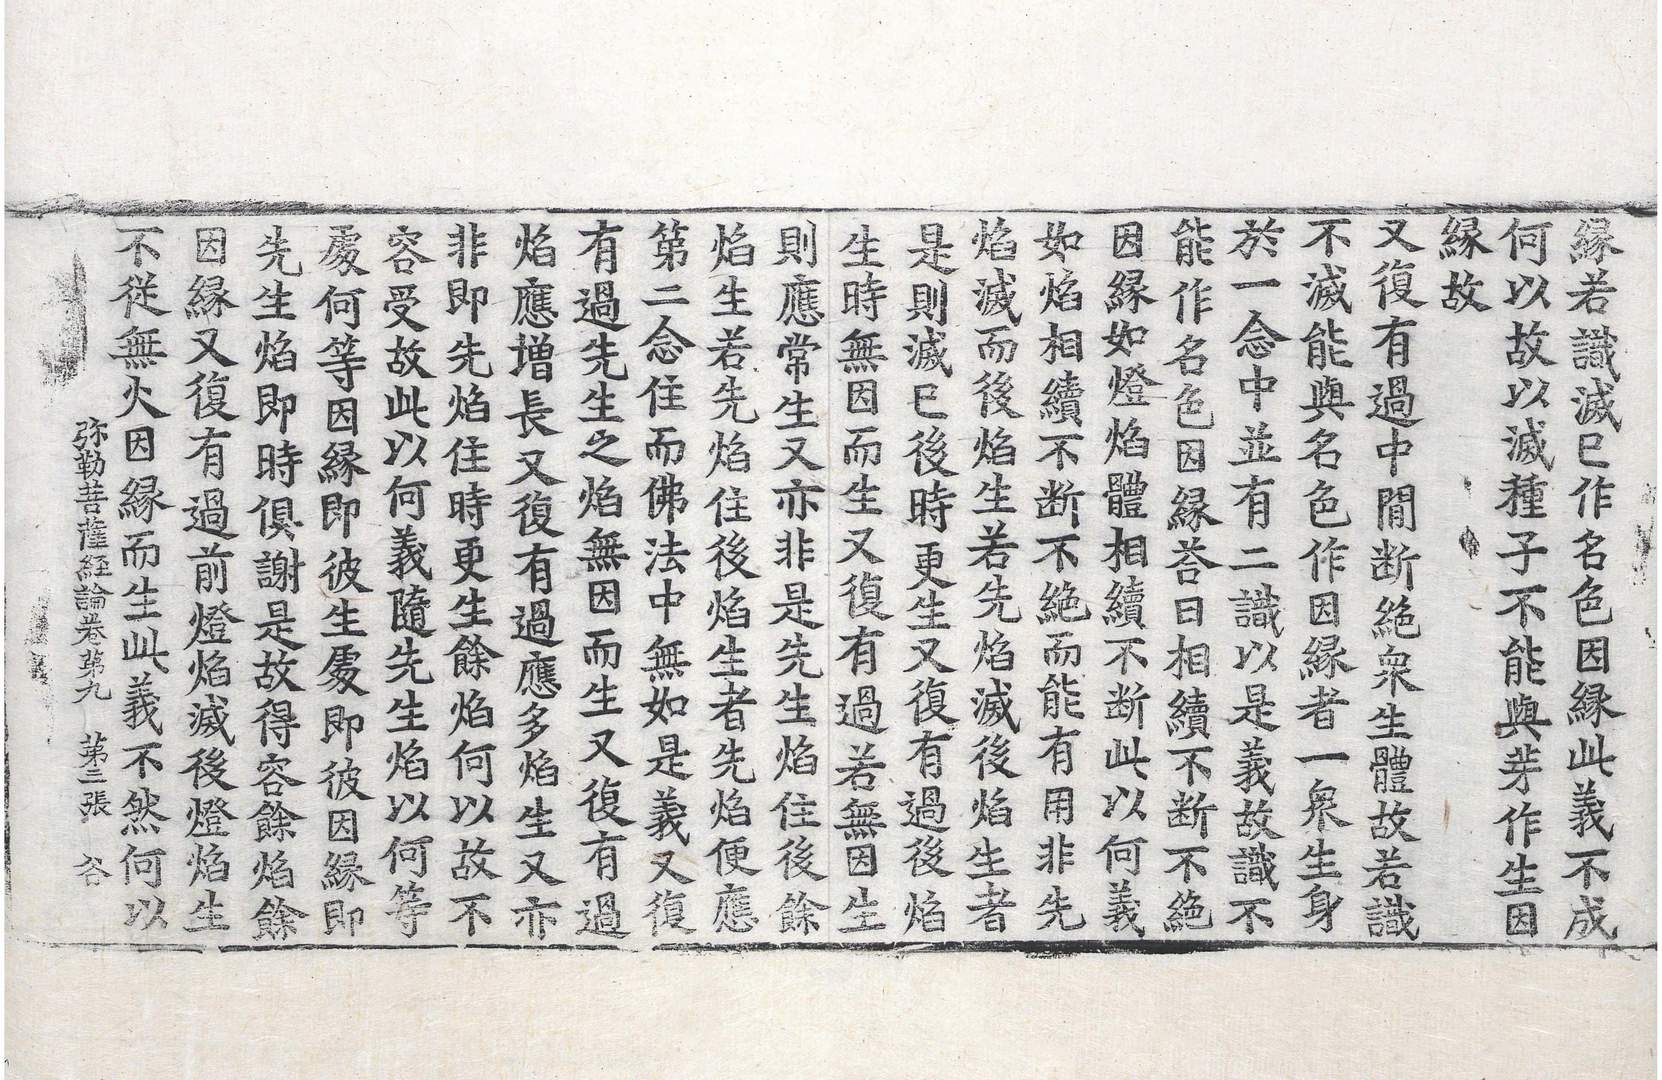 縁若識滅已作名色因縁此義不成
何以故以滅種子不能與芽作生因
縁故
又復有過中間断絶衆生體故若識
不滅能與名色作因縁者一衆生身
於一念中並有二識以是義故識不
能作名色因縁荅曰相續不断不絶
因縁如燈焰體相續不断此以何義
如焰相續不断不絶而能有用非先
焰滅而後焰生若先焰滅後焰生者
是則滅已後時更生又復有過後焰
生時無因而生又復有過若無因生
則應常生又亦非是先生焰住後餘
焰生若先焰住後焰生者先焰便應
第二念住而佛法中無如是義又復
有過先生之焰無因而生又復有過
焰應增長又復有過應多焰生又亦
非即先焰住時更生餘焰何以故不
容受故此以何義隨先生焰以何等
處何等因縁即彼生處即彼因縁即
先生焰即時俱謝是故得容餘焰餘
因縁又復有過前燈焰滅後燈焰生
不從無火因縁而生此義不然何以
弥勒菩薩經論卷第九 第二張 谷